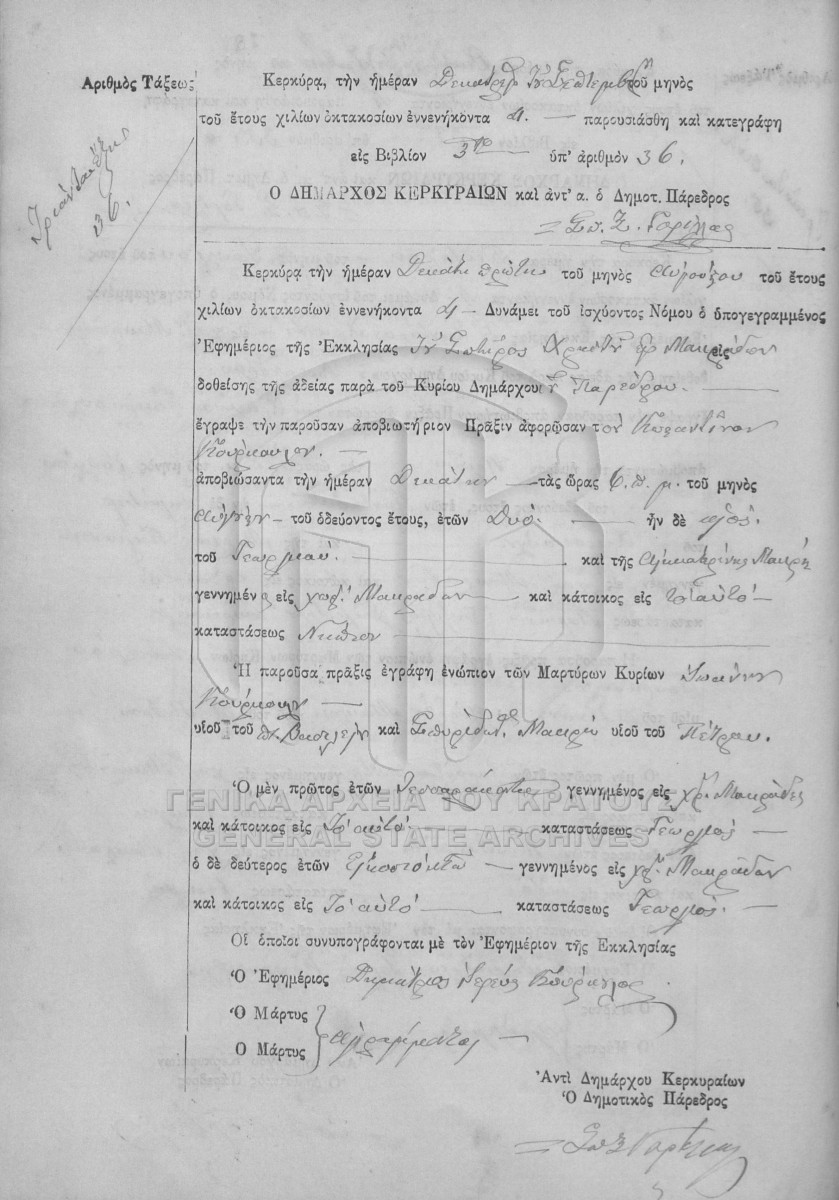 Ἀριθμὸς Τάξεως
Τριάντα ἕξ
36.
Κερκύρᾳ, τὴν ἡμέραν τοῦ μηνὸς
τοῦ ἔτους χιλίων ὀκτακοσίων ἐννενήκοντα παρουσιάσθη καὶ κατεγράφη
εἰς Βιβλίον 3ον ὑπ' ἀριθμὸν 36.
Ὁ ΔΗΜΑΡΧΟΣ ΚΕΡΚΥΡΑΙΩΝ καὶ ἀντ' α. ὁ Δημοτ. Πάρεδρος
Κερκύρᾳ τὴν ἡμέραν Δεκάτη πρώτη τοῦ μηνὸς Αὐγούστου τοῦ ἔτους
χιλίων ὀκτακοσίων ἐννενήκοντα Δυνάμει τοῦ ἰσχύοντος Νόμου ὁ ὑπογεγραμμένος
Ἐφημέριος τῆς Ἐκκλησίας Σωτῆρος Χριστοῦ Μακράδων εἰς
δοθείσης τῆς ἀδείας παρὰ τοῦ Κυρίου Δημάρχου Παρέδρου.
ἔγραψε τὴν παροῦσαν ἀποβιωτήριον Πρᾶξιν ἀφορῶσαν τὸν Κωσταντῖνον
Κούρκουλον.
ἀποβιώσαντα τὴν ἡμέραν Δεκάτην τὰς ὥρας 6. π. μ. τοῦ μηνὸς
τοῦ ὁδεύοντος ἔτους, ἐτῶν Δυό. ἦν δὲ υἱὸς.
τοῦ Γεωργίου. καὶ τῆς Αἰκατερίνης Μακρῆ
γεννημένος εἰς χωρ. Μακράδων καὶ κάτοικος εἰς τὸ αὐτὸ
καταστάσεως Νήπιον
Ἡ παροῦσα πρᾶξις ἐγράφη ἐνώπιον τῶν Μαρτύρων Κυρίων Ἰωάννου
Κούρκουλου
υἱοῦ τοῦ Βασιλείου καὶ Σπυρίδωνος Μακρῆ υἱοῦ τοῦ Πέτρου.
Ὁ μὲν πρῶτος ἐτῶν τεσσαράκοντα γεννημένος εἰς χωρ. Μακράδες
καὶ κάτοικος εἰς Τὸ αὐτὸ καταστάσεως Γεωργὸς
ὁ δὲ δεύτερος ἐτῶν Εἰκοσιοκτὼ γεννημένος εἰς χωρ. Μακράδων
καὶ κάτοικος εἰς Τὸ αὐτὸ καταστάσεως Γεωργὸς.
Οἱ ὁποῖοι συνυπογράφονται μὲ τὸν Ἐφημέριον τῆς Ἐκκλησίας
Ὁ Ἐφημέριος Δημήτριος Ἱερεὺς Κούρκουλος
Ὁ Μάρτυς
Ὁ Μάρτυς ἀγράμματοι
Ἀντὶ Δημάρχου Κερκυραίων
Ὁ Δημοτικὸς Πάρεδρος
ΓΕΝΙΚΑ ΑΡΧΕΙΑ ΤΟΥ ΚΡΑΤΟΥΣ
GENERAL STATE ARCHIVES